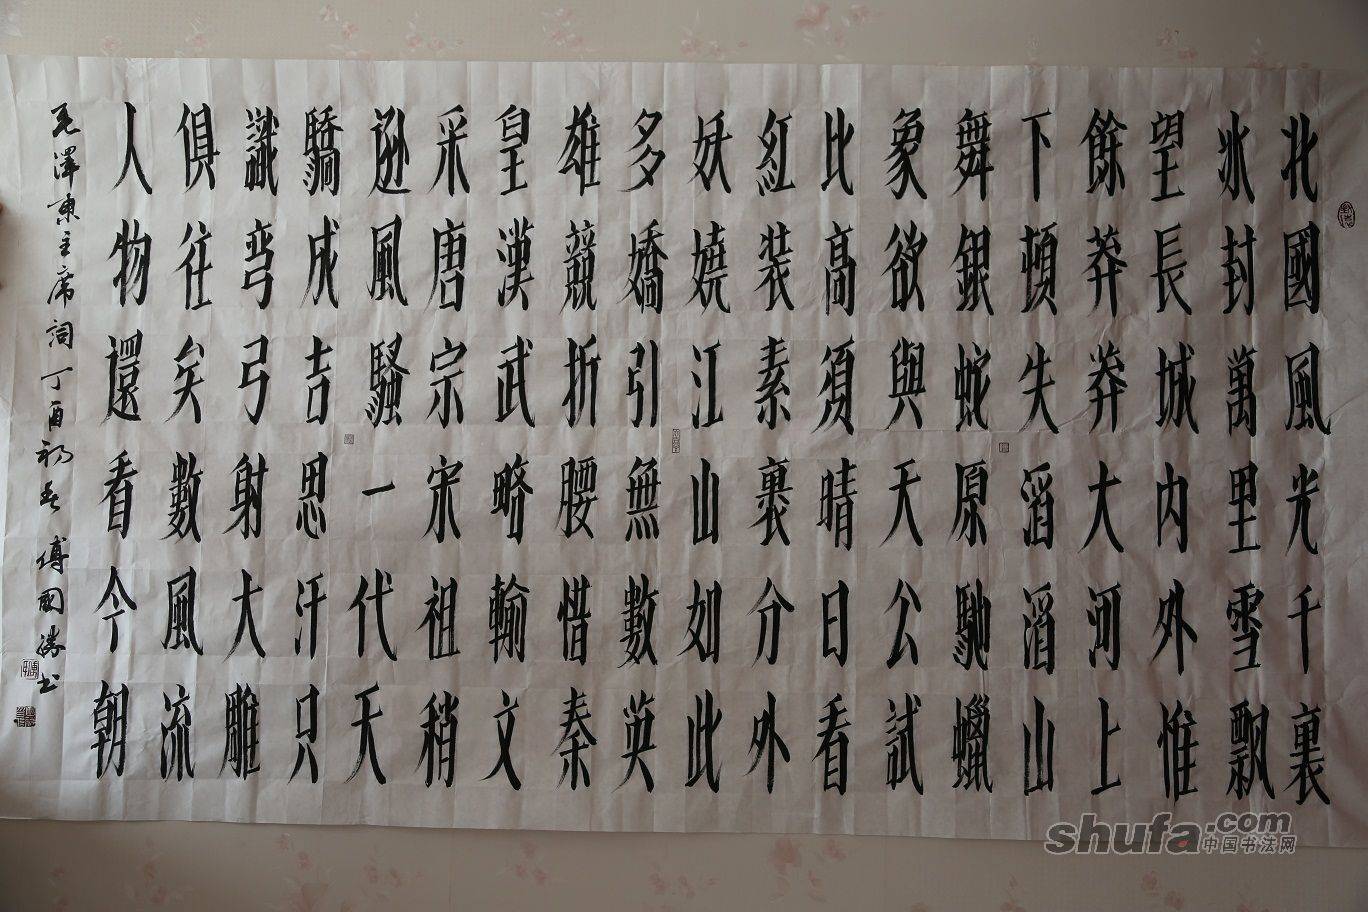 北國風光千裏
冰封萬里雪飄
望長城内外惟
餘莽莽大河上
下頓失滔滔山
舞銀蛇原馳蠟
象欲與天公試
比高須晴日看
紅裝素裹分外
妖嬈江山如此
多嬌引無數英
雄競折腰惜秦
皇漢武略輸文
采唐宗宋祖稍
遜風騷一代天
驕成吉思汗只
識彎弓射大雕
俱往矣數風流
人物還看今朝
毛澤東主席詞丁酉初春傅國勝书
shufa.com
中国书法网